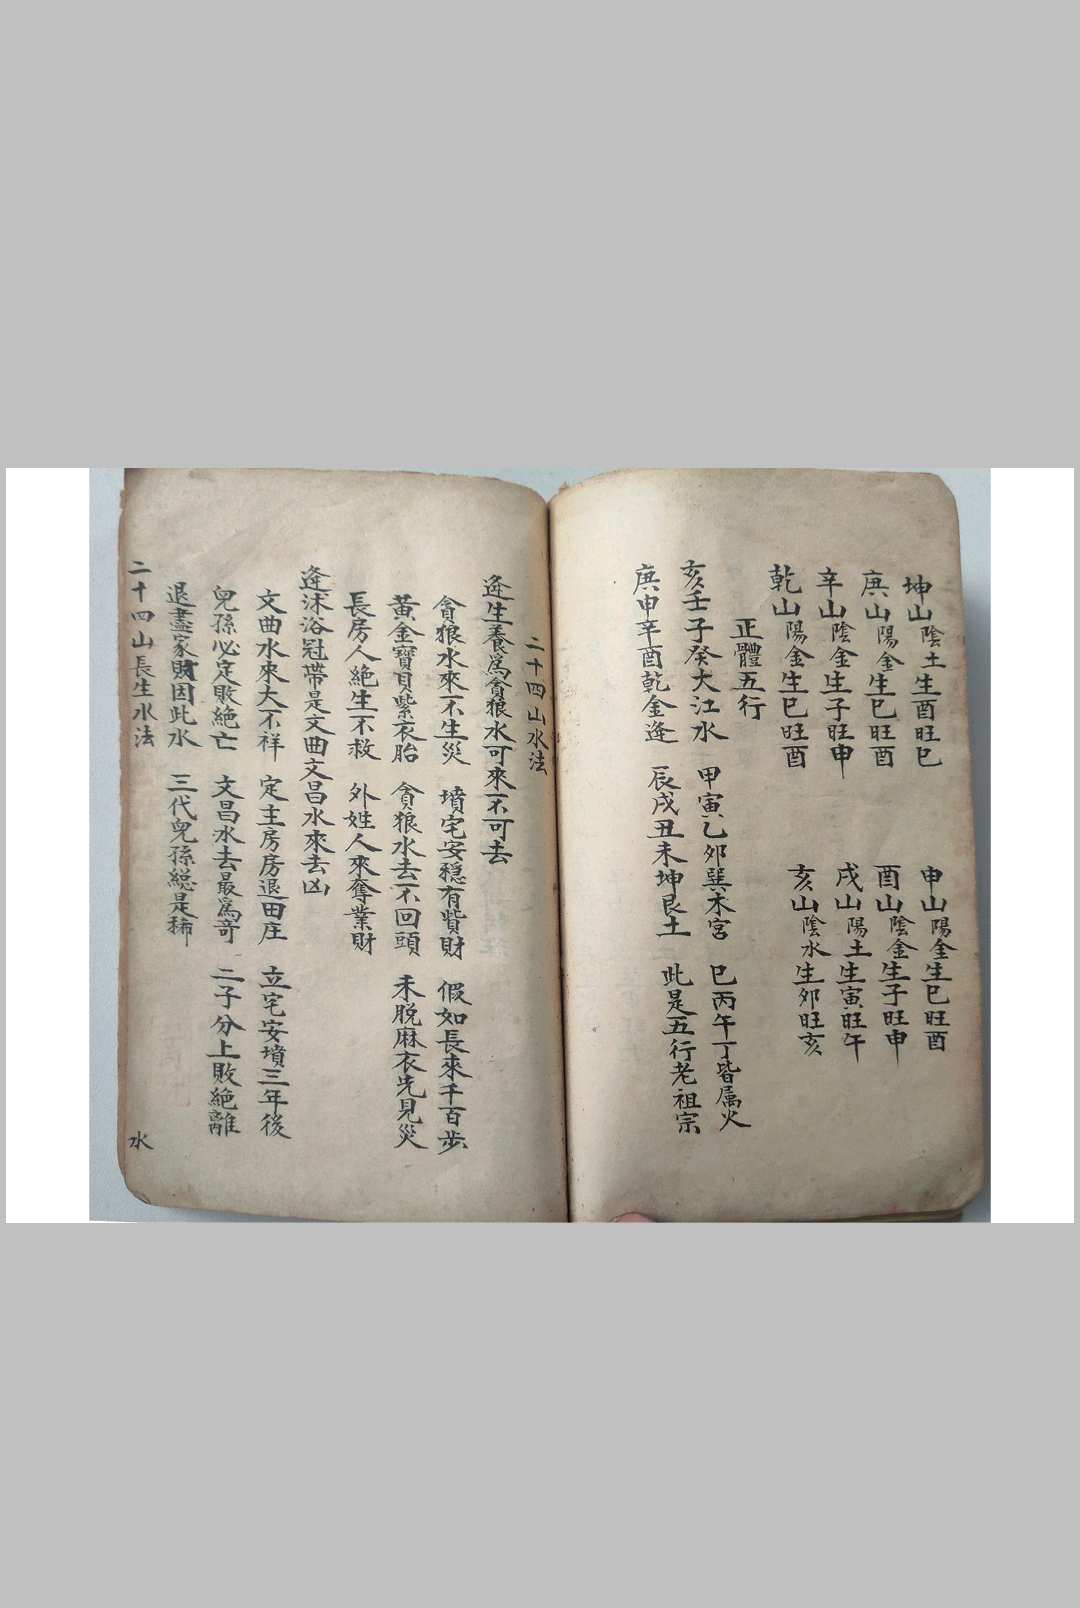 坤山陰土生酉旺巳　申山陽金生巳旺酉
庚山陽金生巳旺酉　酉山陰金生子旺申
辛山陰金生子旺申　戌山陽土生寅旺午
乾山陽金生巳旺酉　亥山陰水生卯旺亥
正體五行
亥壬子癸大江水　甲寅乙卯巽木宮　巳丙午丁皆属火
庚申辛酉乾金逢　辰戌丑未坤艮土　此是五行老祖宗
二十四山水法
逢生養爲貪狼水可來不可去
貪狼水來不生災　墳宅安穏有貲財　假如長來千百歩
黃金寳貝紫衣胎　貪狼水去不回頭　未脱麻衣先見災
長房人絶生不救　外姓人來奪業財
逢沐浴冠帶是文曲文昌水來去凶
文曲水來大不祥　定主房房退田庄　立宅安墳三年後
兒孫必定敗絶亡　文昌水去最爲奇　二子分上敗絶離
退盡家財因此水　三代兒孫縂是稀
二十四山長生水法　水